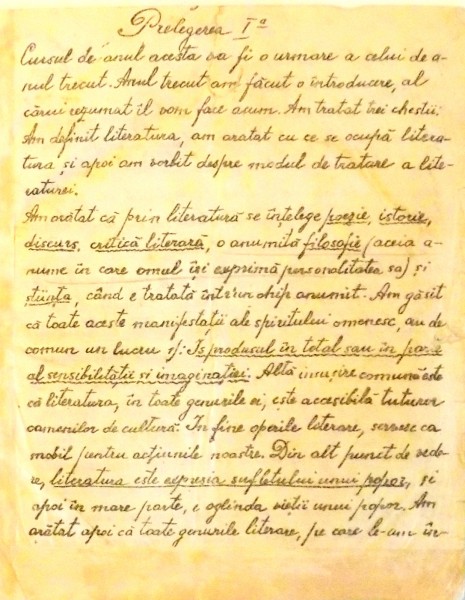 Prelegerea Iª
Cursul de anul acesta va fi o urmare a celui de a-
nul trecut. Anul trecut am făcut o introducere, al
cărui rezumat îl vom face acum. Am tratat trei chestii.
Am definit literatura, am arătat cu ce se ocupă litera-
tura, și apoi am vorbit despre modul de tratare a lite-
raturei.
Am arătat că prin literatură se înțelege poezie, istorie,
discurs, critică literară, o anumită filosofie (aceia a-
nume în care omul își exprimă personalitatea sa) și
știința, când e tratată într'un chip anumit. Am găsit
că toate aceste manifestații ale spiritului omenesc, au de
comun un lucru și: Is produsul în total sau în parte
al sensibilității și imaginației. Altă însușire comună este
că literatura, în toate genurile ei, este accesibilă tuturor
oamenilor de cultură. În fine operile literare, servesc ca
mobil pentru acțiunile noastre. Din alt punct de vede-
re, literatura este expresia sufletului unui popor, și
apoi în mare parte, e oglinda vieții unui popor. Am
arătat apoi că toate genurile literare, pe care le-am în-